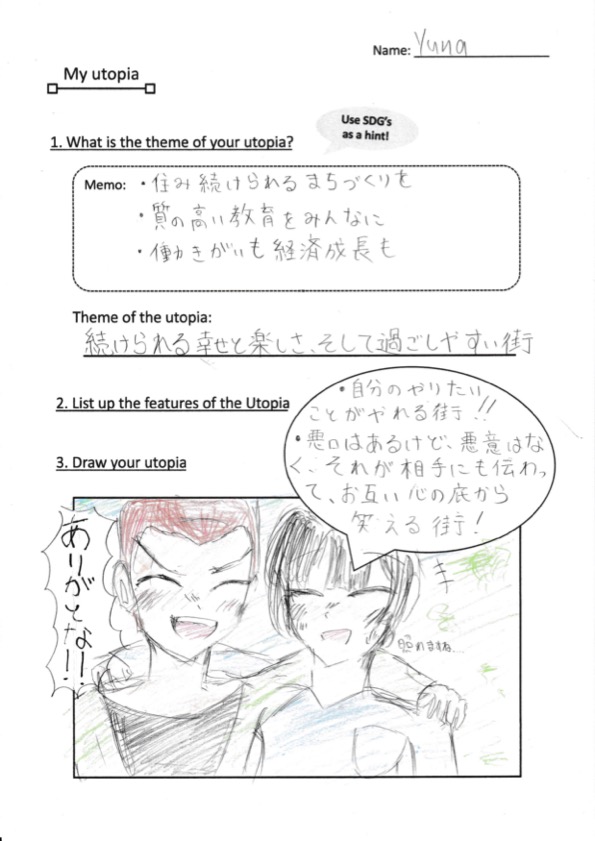 Name: Yuna
My utopia
Use SDG's
as a hint!
1. What is the theme of your utopia?
Memo: ・住み続けられるまちづくりを
・質の高い教育をみんなに
・働きがいも経済成長も
Theme of the utopia:
続けられる幸せと楽しさ、そして過ごしやすい街
2. List up the features of the Utopia
・自分のやりたい
ことがやれる街!!
・悪口はあるけど、悪意はな
く、それが相手にも伝わっ
て、お互い心の底から
笑える街!
3. Draw your utopia
ありがとなー!
照れますね…